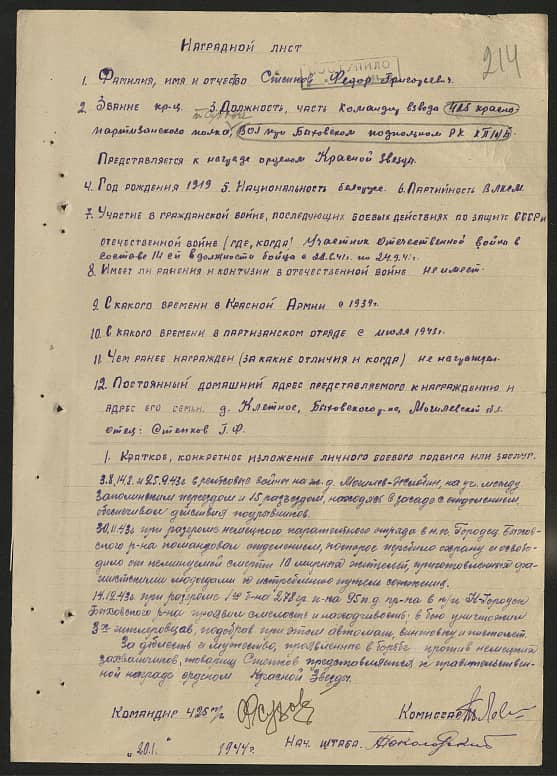 214
Наградной лист
ПОСТУПИЛО
1. Фамилия, имя и отчество Стенков Федор Григорьевич
2. Звание кр-ц. 3. Должность, часть Командир взвода 425 красно
партизанского полка, ВОГ при Быховском подпольном РК КП(б)Б
Представляется к награде орденом Красной Звезды.
4. Год рождения 1919 5. Национальность белорус. 6. Партийность ВЛКСМ.
7. Участие в гражданской войне, последующих боевых действиях по защите СССР и
отечественной войне (где, когда) Участник отечественной войны в
составе 14 в должности бойца с 22.6.41г. по 24.9.41г.
8. Имеет ли ранения и контузии в отечественной войне не имеет.
9. С какого времени в Красной Армии с 1939г.
10. С какого времени в партизанском отряде с июля 1943г.
11. Чем ранее награжден (за какие отличия и когда) не награжден.
12. Постоянный домашний адрес представляемого к награждению и
адрес его семьи. д. Клетное, Быховского р-на, Могилевской обл.
Отец: Стенков Г.Ф.
1. Краткое, конкретное изложение личного боевого подвига или заслуг.
3.8, 14.8. и 25.9.43г в рельсовые войны на ж.д. Могилев-Жлобин, на уч. между
переездом и 15 разъездом, находясь в засаде с отделением
обеспечивал действия подрывников.
30.11.43г при разгроме немецкого карательного отряда в н.п. Городец Быхов-
ского р-на командовал отделением, которое перебило охрану и освобо-
дило от неминуемой смерти 10 мирных жителей, приготовленных фа-
шистскими людоедами к истреблению путем сожжения.
14.12.43г при разгроме 1го б-на 278гр п-ка 95 п.д. пр-ка в н/п Н-Городец
Быховского р-на проявил смелость и находчивость: в бою уничтожил
3х гитлеровцев, подобрав при этом автомат, винтовку и пистолет.
За доблесть и мужество, проявленные в борьбе против немецких
захватчиков, товарищ Стенков представляется к правительствен-
ной награде орденом Красной Звезды.
Командир 425 п/п
Комиссар
"20.1. 1944г.
Нач. штаба.